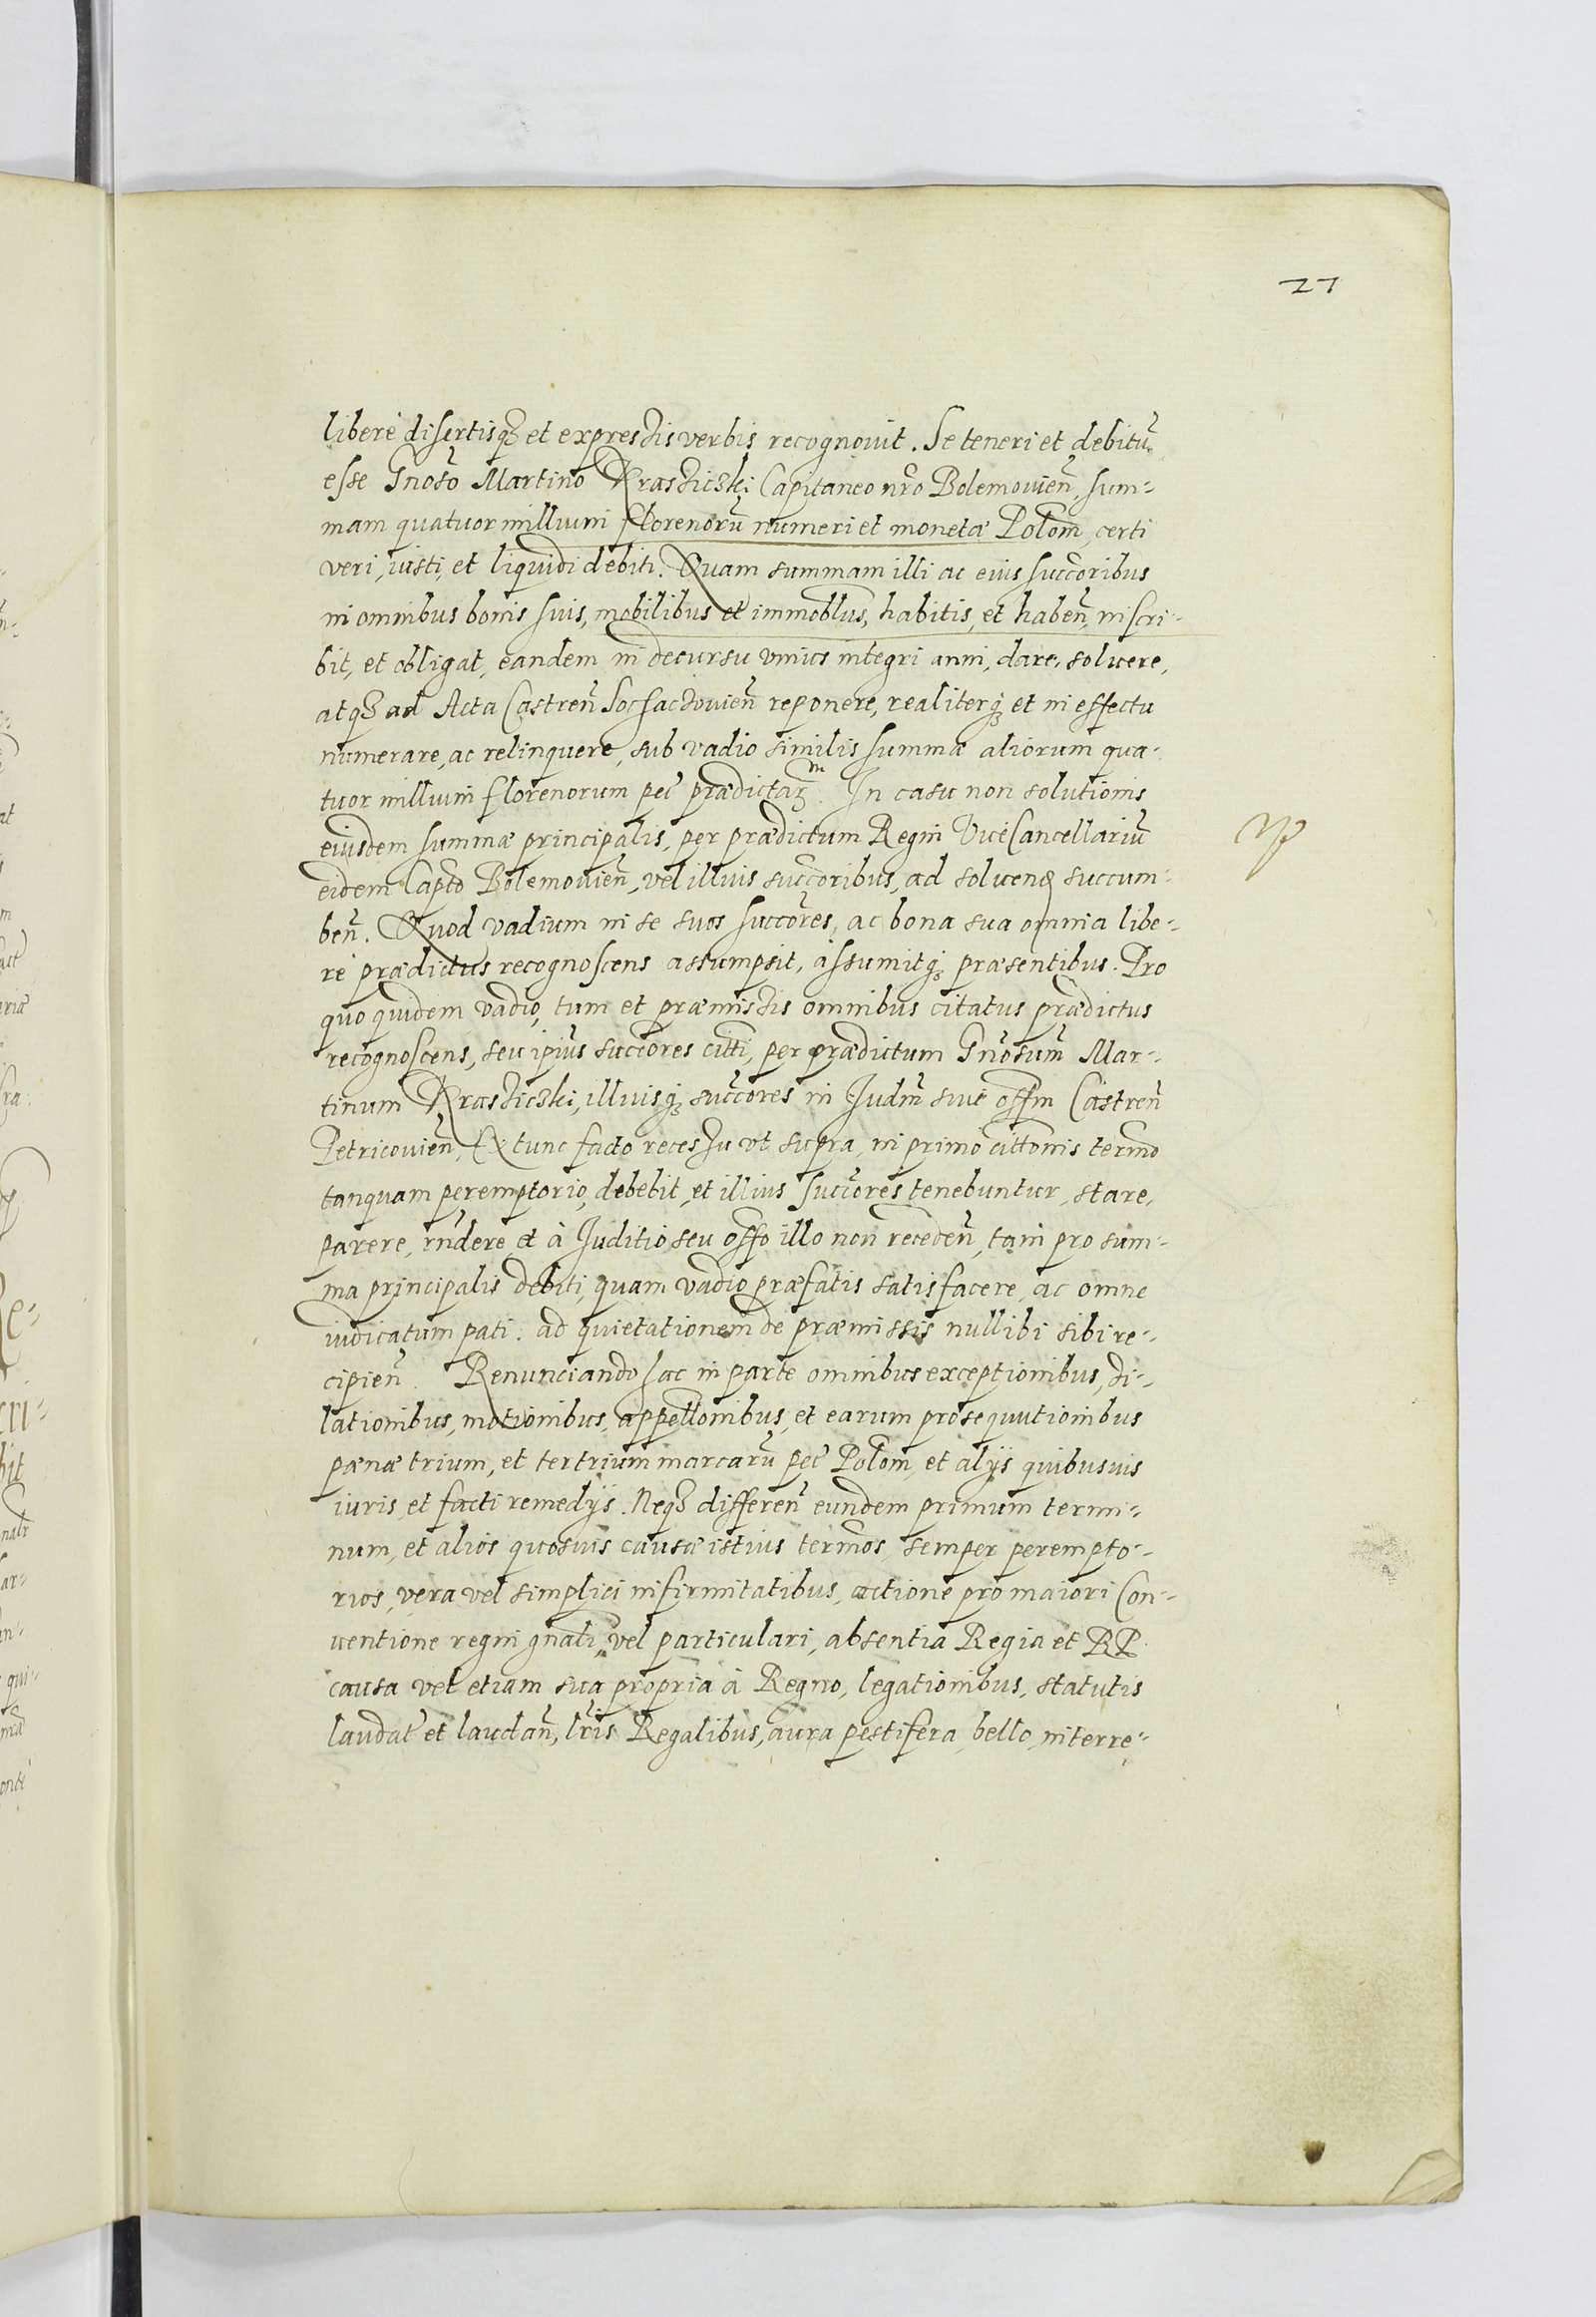 27
liberè disertisq3 et expressis verbis recognouit. Se teneri et debitũ
esse Gnoso̅ Martino Krasziczki Capitaneo nr̅o Bolemouien̅, sum-
mam quatuor millium florenorũ numeri et monetæ Polom̅, certi
veri, iusti, et liquidi debiti. Quam summam illi ac eius succoribus
in omnibus bonis suis, mobilibus et immoblus, habitis, et haben̅, inscri-
bit, et obligat, eandem in decursu vnius integri anni, dare, soluere,
atq3 ad Acta Castren̅ Sochaczouien̅ reponere, realiterq3 et in effectu
numerare, ac relinquere, sub vadio similis summæ aliorum qua-
tuor millium florenorum pec̅ prædictar3 m. In casu non solutionis
eiusdem summæ principalis, per prædictum Regni ViceCancellariũ
eidem Capto̅ Bolemouien̅, vel illius succoribus, ad soluend succum-
ben̅. Quod vadium in se suos succores, ac bona sua omnia libe-
rè prædictus recognoscens assumpsit, assumitq3 præsentibus. Pro
quo quidem vadio, tum et præmissis omnibus citatus prædictus
recognoscens, seu ipius succores citti, per prædictum Gnosum̅ Mar-
tinum Krasziczki, illiusq3 succores in Judm̅ siue offm Castren̅
Petricouien̅, Ex tunc facto recessu vt supra, in primo cittonis termo
tanquam peremptorio, debebit, et illius succores tenebuntur, stare,
parere, rn̅dere, et à Juditio seu offo illo non receden̅, tam pro sum-
ma principalis debiti, quam vadio præfatis satisfacere, ac omne
iudicatum pati. ad quietationem de præmissis nullibi sibi re-
cipien̅. Renunciando hac in parte omnibus exceptionibus, di-
lationibus, motionibus, appellonibus, et earum prosequutionibus
pænæ trium, et tertrium marcarũ pec̅ Polom̅, et alÿs quibusuis
iuris, et facti remedÿs. Neq3 differen̅ eundem primum termi-
num, et alios quosuis causæ istius termos, semper perempto-
rios, vera vel simplici infirmitatibus, actione pro maiori Con-
uentione regni gnali, vel particulari, absentia Regia et RP.
causa vel etiam sua propria à Regno, legationibus, statutis
laudat̅ et laudan̅, lr̅is Regalibus, aura pestifera, bello, interre-